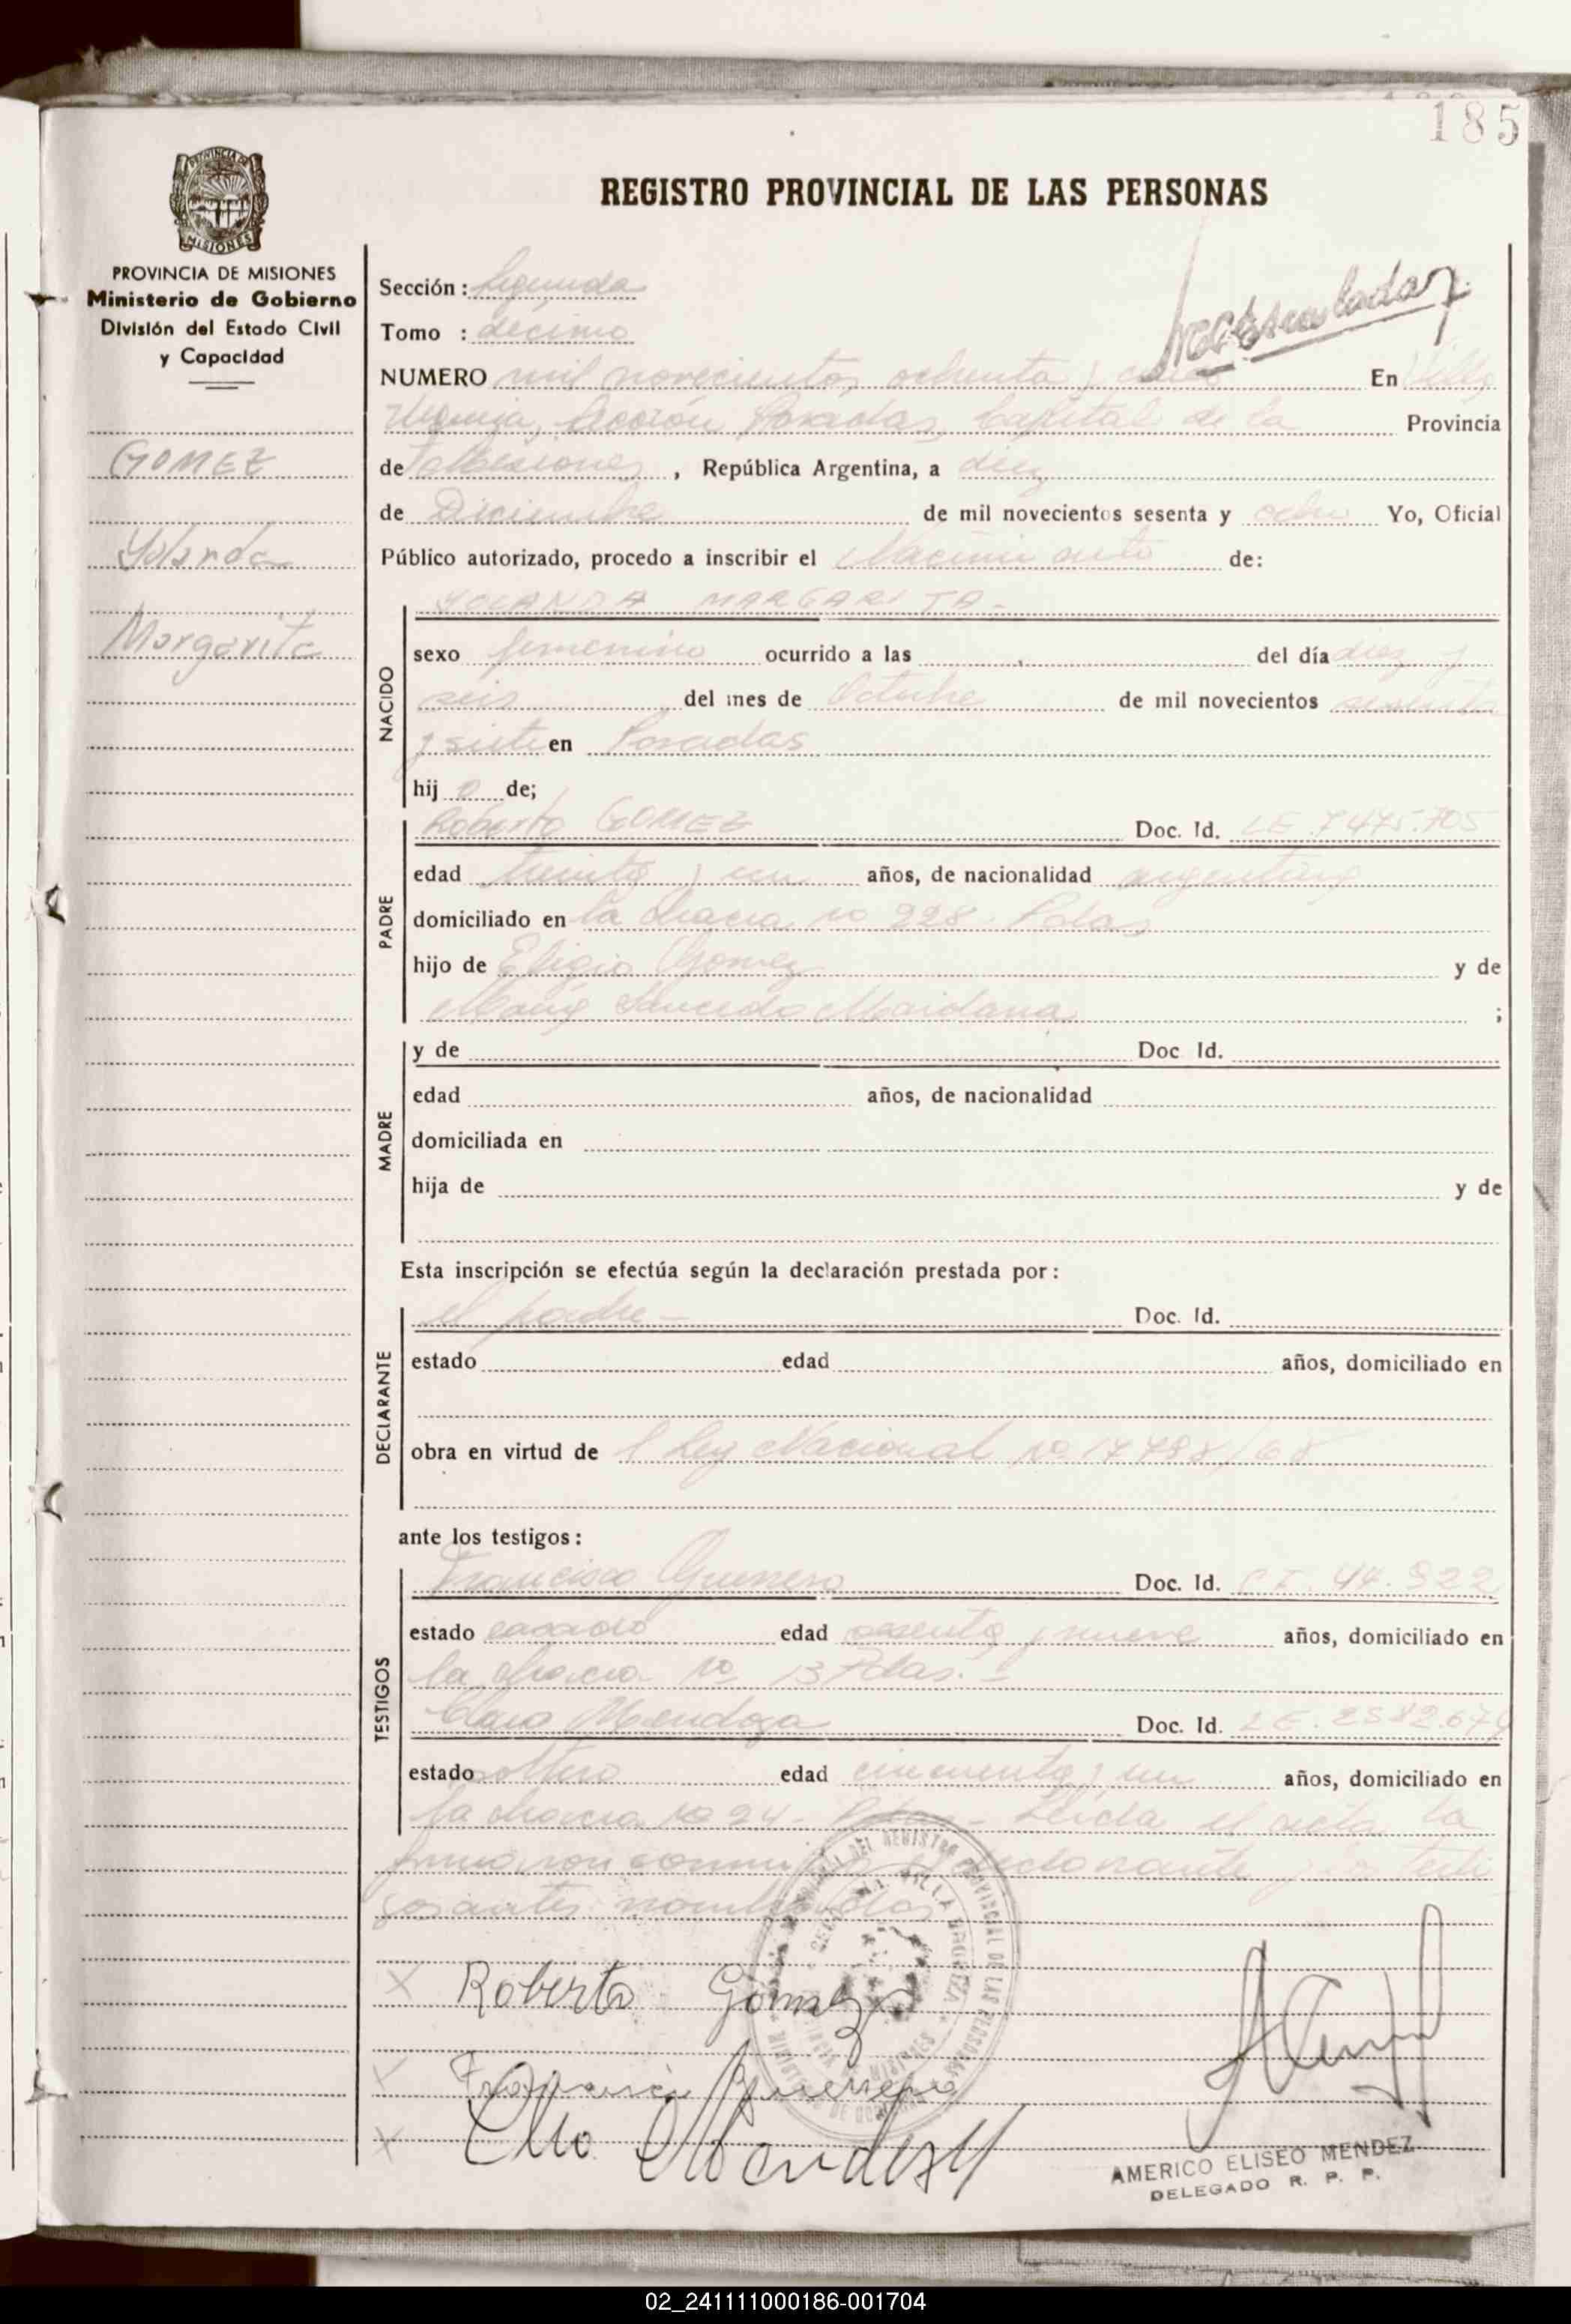 185
PROVINCIA DE
MISIONES
REGISTRO PROVINCIAL DE LAS PERSONAS
PROVINCIA DE MISIONES
Ministerio de Gobierno
División del Estado Civil
y Capacidad
GOMEZ
Yolanda
Margarita
Sección: Segunda
Tomo : décimo
NUMERO mil novecientos ochenta y En Villa
Urquiza, Sección Posadas, Capital de la Provincia
de Misiones, República Argentina, a diez
de Diciembre de mil novecientos sesenta y ocho Yo, Oficial
Público autorizado, procedo a inscribir el Nacimiento de:
NACIDO
YOLANDA MARGARITA-
sexo femenino ocurrido a las del día diez y
seis del mes de Octubre de mil novecientos sesenta
y siete en Posadas
hij o de;
PADRE
Roberto GOMEZ Doc. Id. LE 7475.705
edad treinta y un años, de nacionalidad argentina
domiciliado en la chacra no 228. Pdas
hijo de Eligio Gomez y de
María Maidana ;
MADRE
y de Doc Id.
edad años, de nacionalidad
domiciliada en
hija de y de
Esta inscripción se efectúa según la declaración prestada por:
DECLARANTE
el padre - Doc. Id.
estado edad años, domiciliado en
obra en virtud de Ley Nacional no
ante los testigos:
TESTIGOS
Francisco Guerrero Doc. Id. C I. 44.922
estado casado edad sesenta y nueve años, domiciliado en
la chacra no 13 Pdas. -
Mendoza Doc. Id. L E. 2582.674
estado soltero edad cincuenta y un años, domiciliado en
la chacra no 24 - Pdas - Leida el acta la
firmaron conmigo el declarante y los testi
gos antes nombrados
VILLA URQUIZA
X Roberto Gómez
X Francisco Guerrero
X Mendoza
AMERICO ELISEO MENDEZ
DELEGADO R. P. P.
02_241111000186-001704